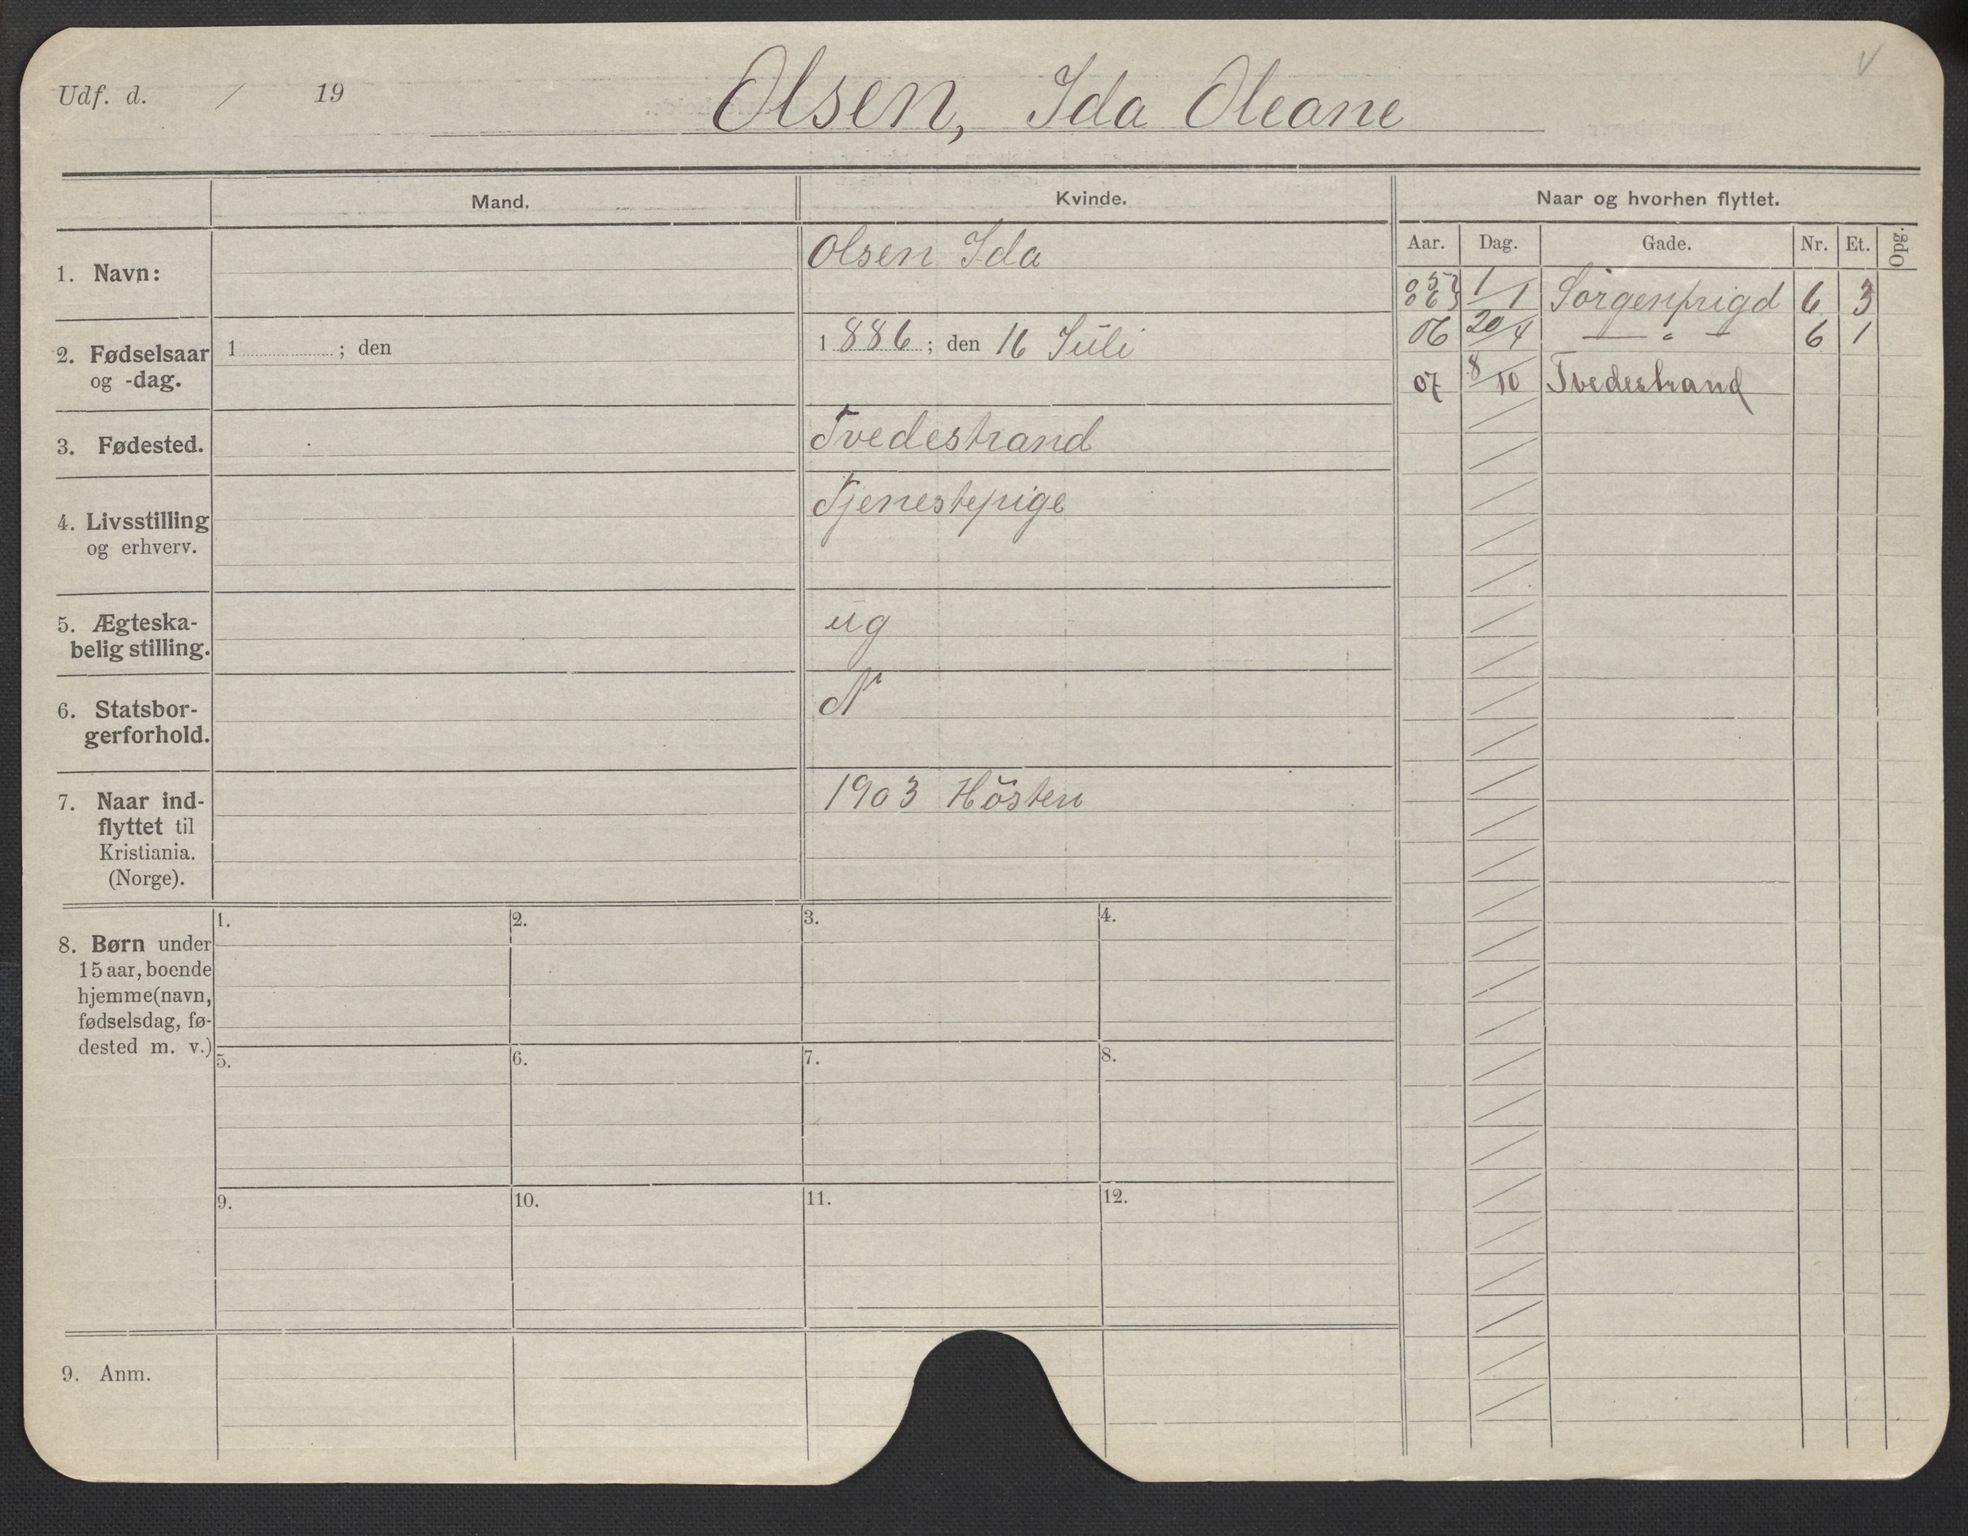 Udf. d. / 19
Olsen, Ida Oleane
Mand.
Kvinde.
Naar og hvorhen flyttet.
Aar. Dag. Gade. Nr. Et. Opg.
1. Navn:
Olsen Ida
1/1 Sorgenfrigd 6 3
06 20/4 — " — 6 1
07 8/10 Tvedestrand
2. Fødselsaar
og -dag.
1 ; den
1886 ; den 16 Juli
3. Fødested.
Tvedestrand
4. Livsstilling
og erhverv.
Tjenestepige
5. Ægteska-
belig stilling.
ug
6. Statsbor-
gerforhold.
N
7. Naar ind-
flyttet til
Kristiania.
(Norge).
1903 Hösten
8. Børn under
15 aar, boende
hjemme (navn,
fødselsdag, fø-
dested m. v.)
1. 2. 3. 4.
5. 6. 7. 8.
9. 10. 11. 12.
9. Anm.